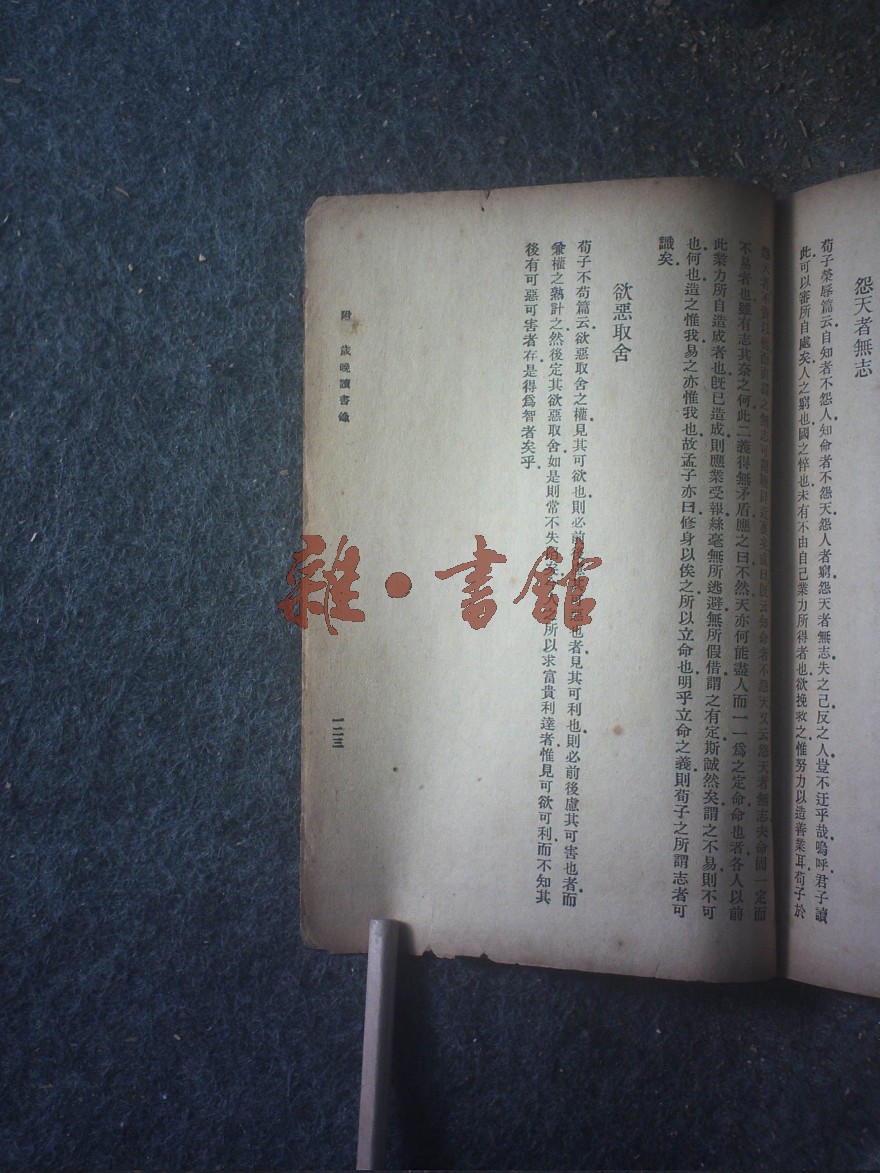 怨天者無志
荀子榮辱篇云自知者不怨人知命者不怨天怨人者窮怨天者無志失之己反之人豈不迂乎哉嗚呼君子讀
此可以審所自處矣人之窮也國之悴也未有不由自己業力所得者也欲挽救之惟努力以造善業耳荀子於
怨天者不
無志
知命者不怨天又云怨天者無志夫命固一定而
不易者也雖有志其奈之何此二義得無矛盾應之曰不然天亦何能盡人而一一爲之定命命也者各人以前
此業力所自造成者也旣已造成則應業受報絲毫無所逃避無所假借謂之有定斯誠然矣謂之不易則不可
也何也造之惟我易之亦惟我也故孟子亦曰修身以俟之所以立命也明乎立命之義則荀子之所謂志者可
識矣
欲惡取舍
荀子不苟篇云欲惡取舍之權見其可欲也則必前後
也者見其可利也則必前後慮其可害也者而
兼權之熟計之然後定其欲惡取舍如是則常不失
所以求富貴利達者惟見可欲可利而不知其
後有可惡可害者在是得爲智者矣乎
附 歲晚讀書錄
一二三
雜·書館